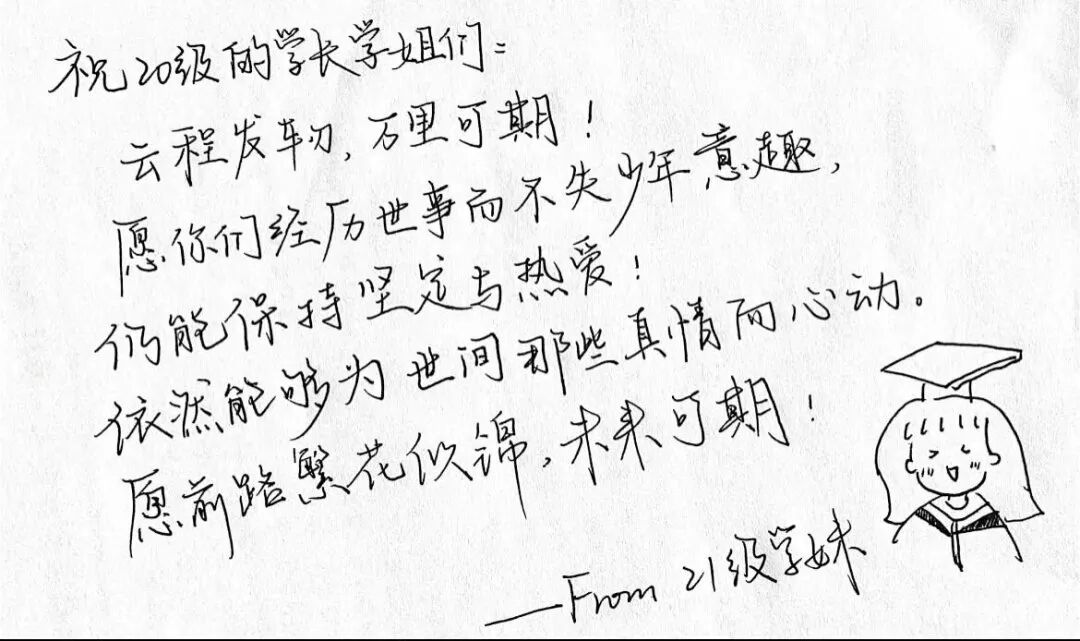 祝20级的学长学姐们：
云程发轫，万里可期！
愿你们经历世事而不失少年意趣，
仍能保持坚定与热爱！
依然能够为世间那些真情而心动。
愿前路繁花似锦，未来可期！
——From 21级学妹